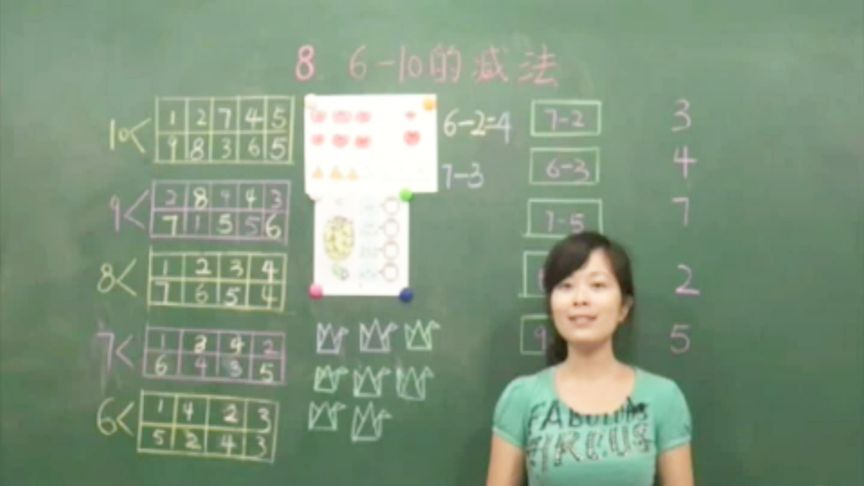 8 6-10的减法
10< 1 2 7 4 5
9 8 3 6 5
9< 2 8 9 4 3
7 1 5 5 6
8< 1 2 3 4
7 6 5 4
7< 1 3 4 2
6 4 3 5
6< 1 4 2 3
5 2 4 3
6-2=4
7-3
7-2
6-3
7-5
9
3
4
7
2
5
FABULOUS
CIRCUS